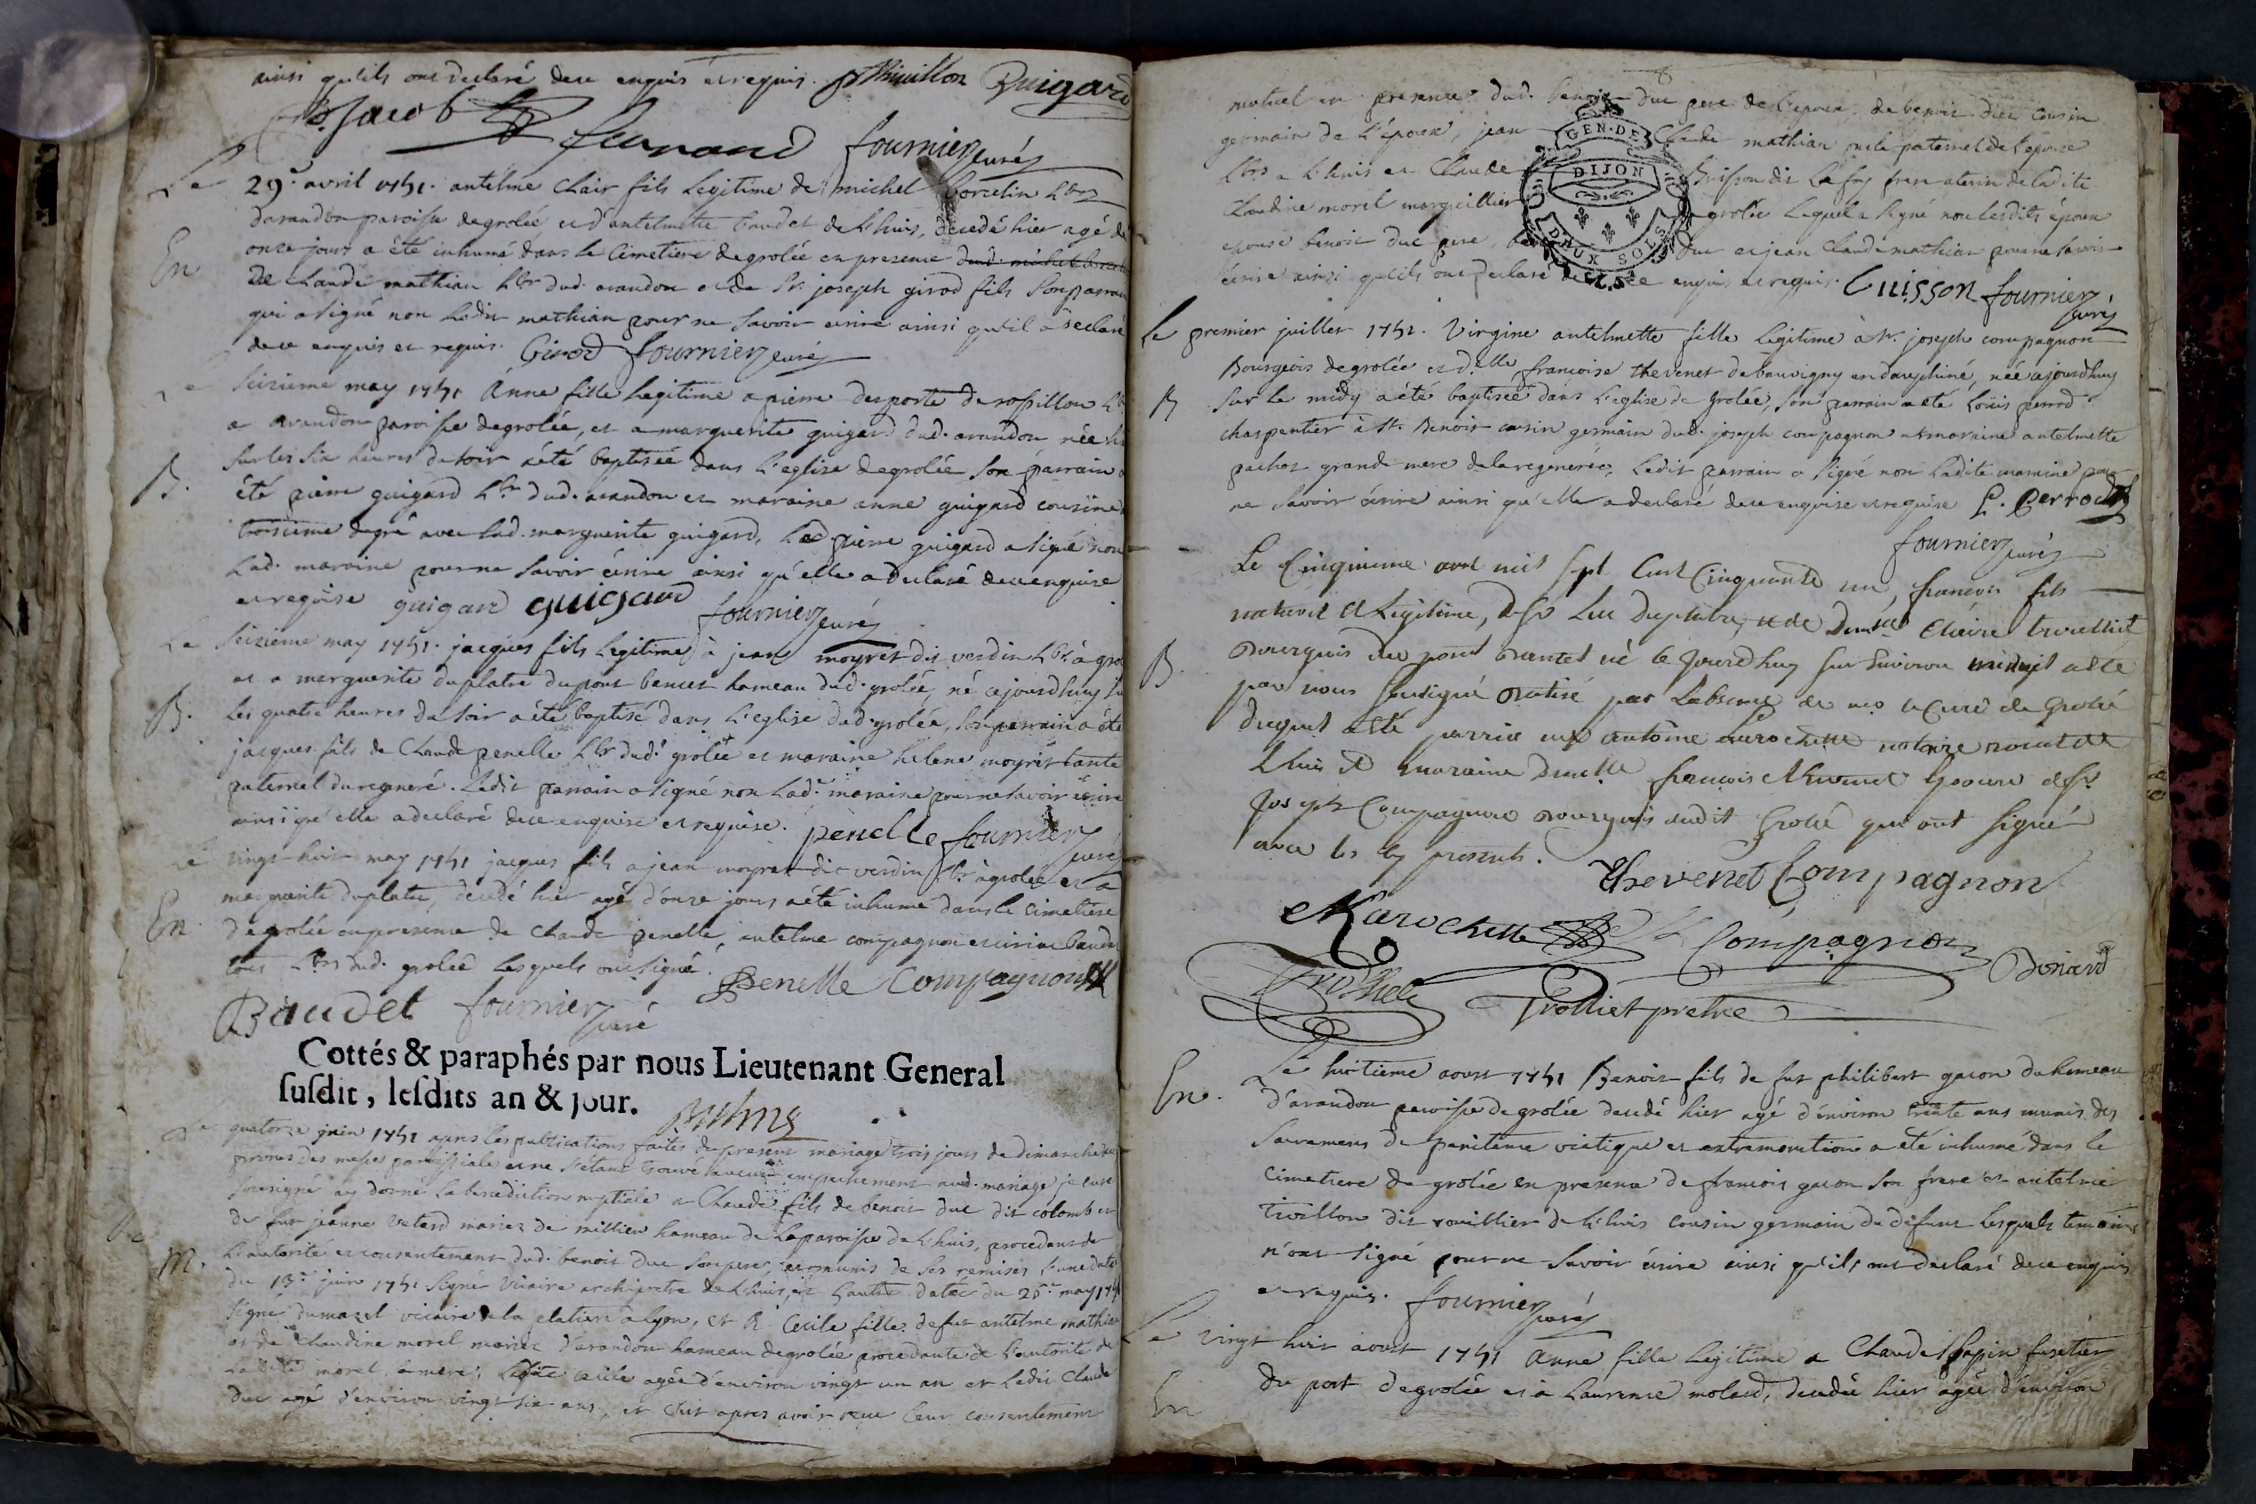 ainsi qu'ils ont declaré de ce enquis et requis. Thivillon Quigard
Jacob Ferrand fournier curé
Le 29e avril 1751. antelme Clair fils legitime de michel borcelin Lbr
darandon paroisse de grolée et d'antelmette baudet de Lhuis, decedé hier agé de
En onze jours a été inhumé dans le Cimetiere de grolée en presence dud. michel
de Claude mathian Lbr dud. arandon et de Sr. joseph girod fils son parrain
qui a signé non Ledit mathian pour ne savoir ecrire ainsi qu'il a declaré
de ce enquis et requis. Girod fournier curé
Le Seizieme may 1751 Anne fille Legitime a pierre desporte de rossillon
a arandon paroisse de grolée, et a marguerite guigard dud. arandon née
sur les six heures du soir a été baptisée dans L'eglise de grolée son parrain a
B. été pierre guigard Lbr dud. arandon et maraine anne guigard cousine
troisieme degré avec lad. marguerite guigard, Led pierre guigard a signé non
Lad. maraine pour ne savoir écrire ainsi qu'elle a declaré de ce enquise
et requise guigard guigard fournier curé
Le Seizieme may 1751. jacques fils Legitime à jean moyret dit verdin Lbr à
et a marguerite duplatre du pont bancet hameau dud. grolée, né ce jourd'huy
B. les quatre heures du soir a été baptisé dans L'eglise dud. grolée, son parrain a été
jacques fils de Claude penelle Lbr dud. grolée et maraine helene moyret tante
paternel du regeneré. Ledit parrain a signé non Lad. maraine pour ne savoir écrire
ainsi qu'elle a declaré de ce enquise et requise. penelle fournier curé
Le vingt-huit may 1751 jacques fils a jean moyret dit verdin Lbr à grolée et a
marguerite duplatre, decedé hier agé d'onze jours a été inhumé dans le cimetiere
En. de grolée en presence de claude penelle, antelme compagnon et
tous Lbrs dud. grolée lesquels ont signé. Penelle Compagnon
Baudet fournier curé
Cottés & paraphés par nous Lieutenant General
susdit, lesdits an & jour.
Le quatorze juin 1751 apres les publications faites du present mariage trois jours de dimanche
prones des messes paroissiale et ne s'étant trouvé aucun empechement aud. mariage je curé
soussigné ay donné La benediction nuptiale a Claude fils de benoit duc dit colomb et
de fut jeanne vetard mariez de millieu hameau de La paroisse de Lhuis, procedant de
M. L'autorité et consentement dud. benoit duc son pere, et munis de ses remises L'une datée
du 13e juin 1751 signé vicaire archipretre de Lhuis, et L'autre datée du 25e may 1751
signé dumazel vicaire de la platiere à Lyon, et h. Cecile fille de fut antelme mathian
et de Claudine morel mariez d'arandon hameau de grolée procedante de L'autorité de
Ladite morel sa mere, Ladite cecile agée d'environ vingt un an et Ledit Claude
duc agé d'environ vingt six ans, et c'est apres avoir reçue leur consentement
mutuel en presence dud. benoit duc pere de l'epoux, de benoit cousin
germain de L'époux, jean Claude mathian oncle paternel de L'épouse
Lbrs a Lhuis et Claude Buisson dit frere uterin de ladite
Claudine morel marguillier grolée Lequel a signé non lesdits époux
epouse benoit duc pere, duc et jean Claude mathian pour ne savoir
écrire ainsi qu'ils ont declaré de ce enquis et requis. Buisson fournier curé
GEN. DE
DIJON
DEUX SOLS
Le premier juillet 1751. Virgine antelmette fille legitime à Sr. joseph compagnon
Bourgeois de grolée et d.elle francoise thevenet de bouvigny en dauphiné, née ce jourd'huy
B sur le midy a été baptisée dans L'eglise de grolée, son parrain a été Loüis perrod
charpentier à St. Benoit cousin germain dud. joseph compagnon et maraine antelmette
pachot grande mere de la regenerée, Ledit parrain a signé non Ladite maraine pour
ne savoir écrire ainsi qu'elle a declaré de ce enquise et requise L. Perrod
fournier curé
Le Cinquieme aout mil sept Cent Cinquante un, francois fils
naturel et Legitime, de Sr Luc et de Demlle Trolliet
Bourgeois du pont né ce jourdhuy sur environ minuit a été
B. par nous soussigné batisé par Labsence de mr le Curé de Grolée
duquel a été parrain mre antoine Larochette notaire royal de
Lhuis et maraine Demlle francoise thevenet epouse de Sr
joseph Compagnon bourgeois dudit Grolé qui ont signé
avec les presents. Thevenet Compagnon
Larochette Compagnon
Donard
Trolliet pretre
Le huitieme aoust 1751 Benoit fils de fut philibert gacon du hameau
En. d'arandon paroisse de grolée decedé hier agé d'environ trente ans munis des
sacremens de penitence viatique et extremonction a été inhumé dans le
cimetiere de grolée en presence de francois gacon son frere et antelme
tivillon dit rouillier de Lhuis cousin germain du defunt Lesquels temoins
n'ont signé pour ne savoir écrire ainsi qu'ils ont declaré de ce enquis
et requis. fournier curé
Le vingt huit aoust 1751 Anne fille legitime a Claude
du port de grolée et à Laurence molard, decedée hier agée d'environ
En